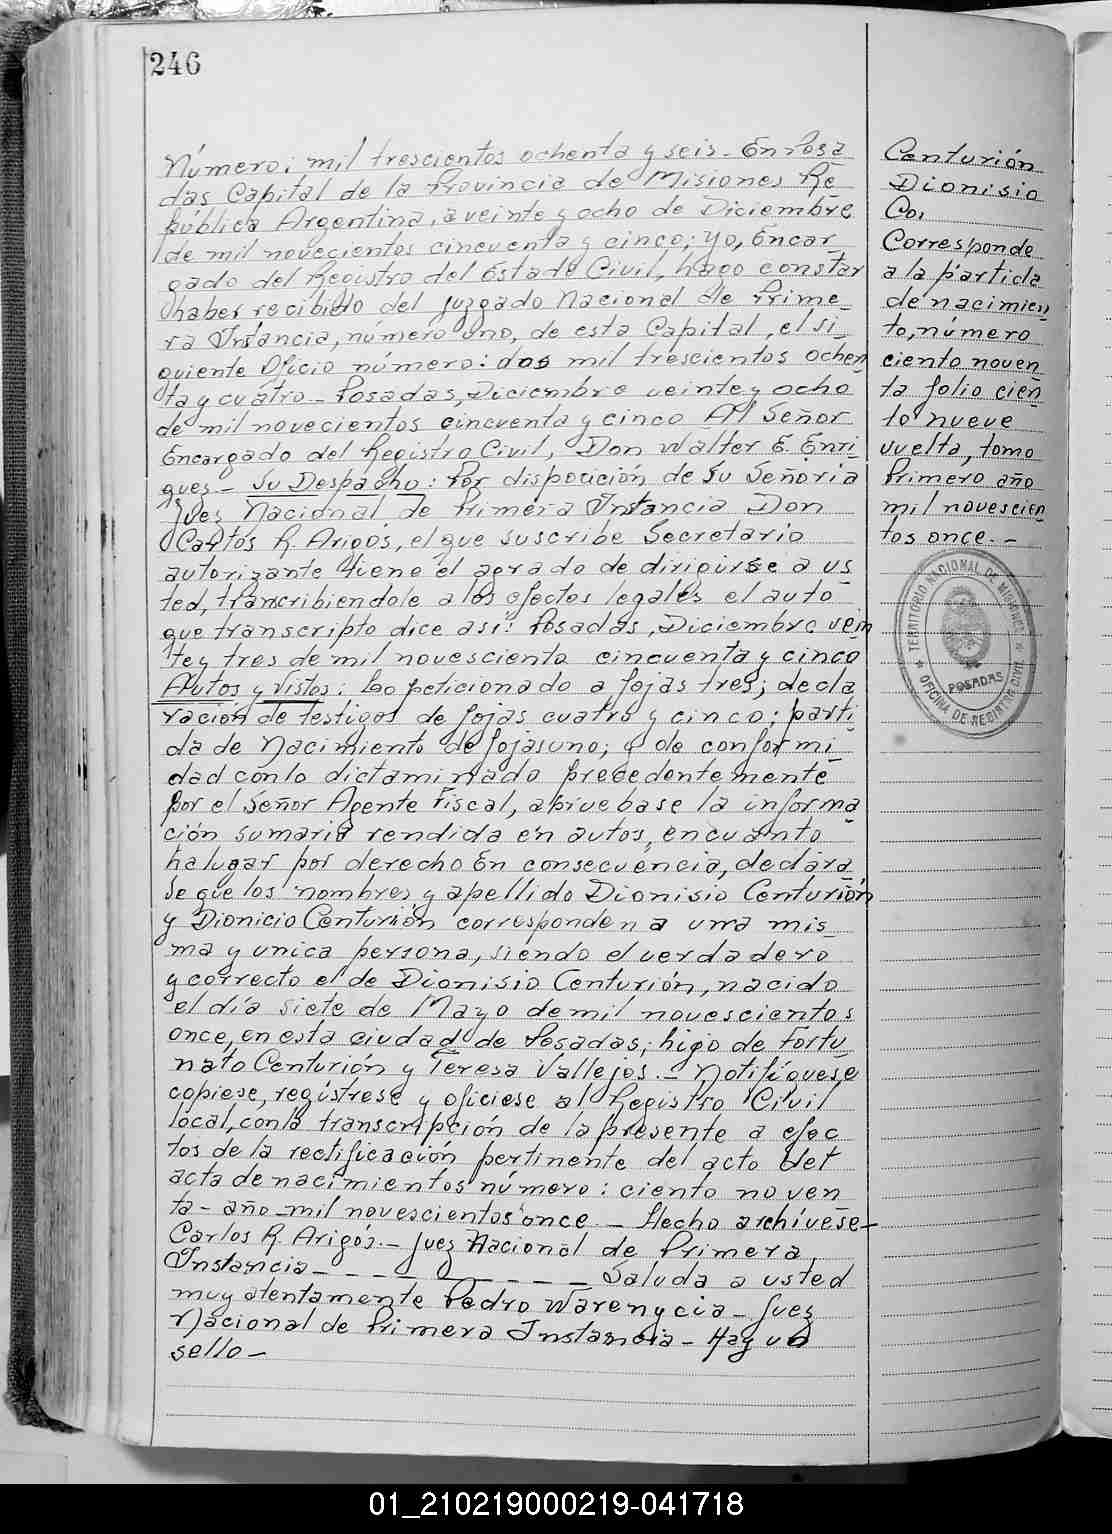 246
Número: mil trescientos ochenta y seis - En Posa
das Capital de la Provincia de Misiones Re
pública Argentina, a veinte y ocho de Diciembre
de mil novecientos cincuenta y cinco; yo, Encar
gado del Registro del Estado Civil, hago constar
haber recibido del Juzgado Nacional de Prime
ra Instancia, número uno, de esta Capital, el si
guiente Oficio número: dos mil trescientos ochen
ta y cuatro - Posadas, Diciembre veinte y ocho
de mil novecientos cincuenta y cinco Al Señor
Encargado del Registro Civil, Don Walter E. Enri
ques - Su Despacho: Por disposición de Su Señoria
Juez Nacional de Primera Instancia Don
Carlos R. Arigós, el que suscribe Secretario
autorizante tiene el agrado de dirigirse a us
ted, transcribiendole a los efectos legales el auto
que transcripto dice asi: Posadas, Diciembre vein
te y tres de mil novesciento cincuenta y cinco
Autos y Vistos: Lo peticionado a fojas tres; decla
ración de testigos de fojas cuatro y cinco; parti
da de Nacimiento de fojas uno; y de conformi
dad con lo dictaminado precedentemente
por el Señor Agente Fiscal, apruebase la informa
ción sumaria rendida en autos, en cuanto
ha lugar por derecho En consecuencia, declara
se que los nombres y apellido Dionisio Centurión
y Dionicio Centurión corresponden a una mis
ma y unica persona, siendo el verdadero
y correcto el de Dionisio Centurión, nacido
el día siete de Mayo de mil novescientos
once, en esta ciudad de Posadas; higo de Fortu
nato Centurión y Teresa Vallejos. - Notifiquese
copiese, regístrese y oficiese al Registro Civil
local, con la transcripción de la presente a efec
tos de la rectificación pertinente del acto del
acta de nacimientos número: ciento noven
ta - año - mil novescientos once. - Hecho archívese -
Carlos R. Arigós. - Juez Nacional de Primera
Instancia - - - - - - - - - - - Saluda a usted
muy atentamente Pedro Warenycia - Juez
Nacional de Primera Instancia - Hay un
sello -
Centurión
Dionisio
Co,
Corresponde
a la partida
de nacimien
to, número
ciento noven
ta folio cien
to nueve
vuelta, tomo
Primero año
mil novescien
tos once. -
TERRITORIO NACIONAL DE MISIONES
POSADAS
OFICINA DE REGISTRO CIVIL
01_210219000219-041718